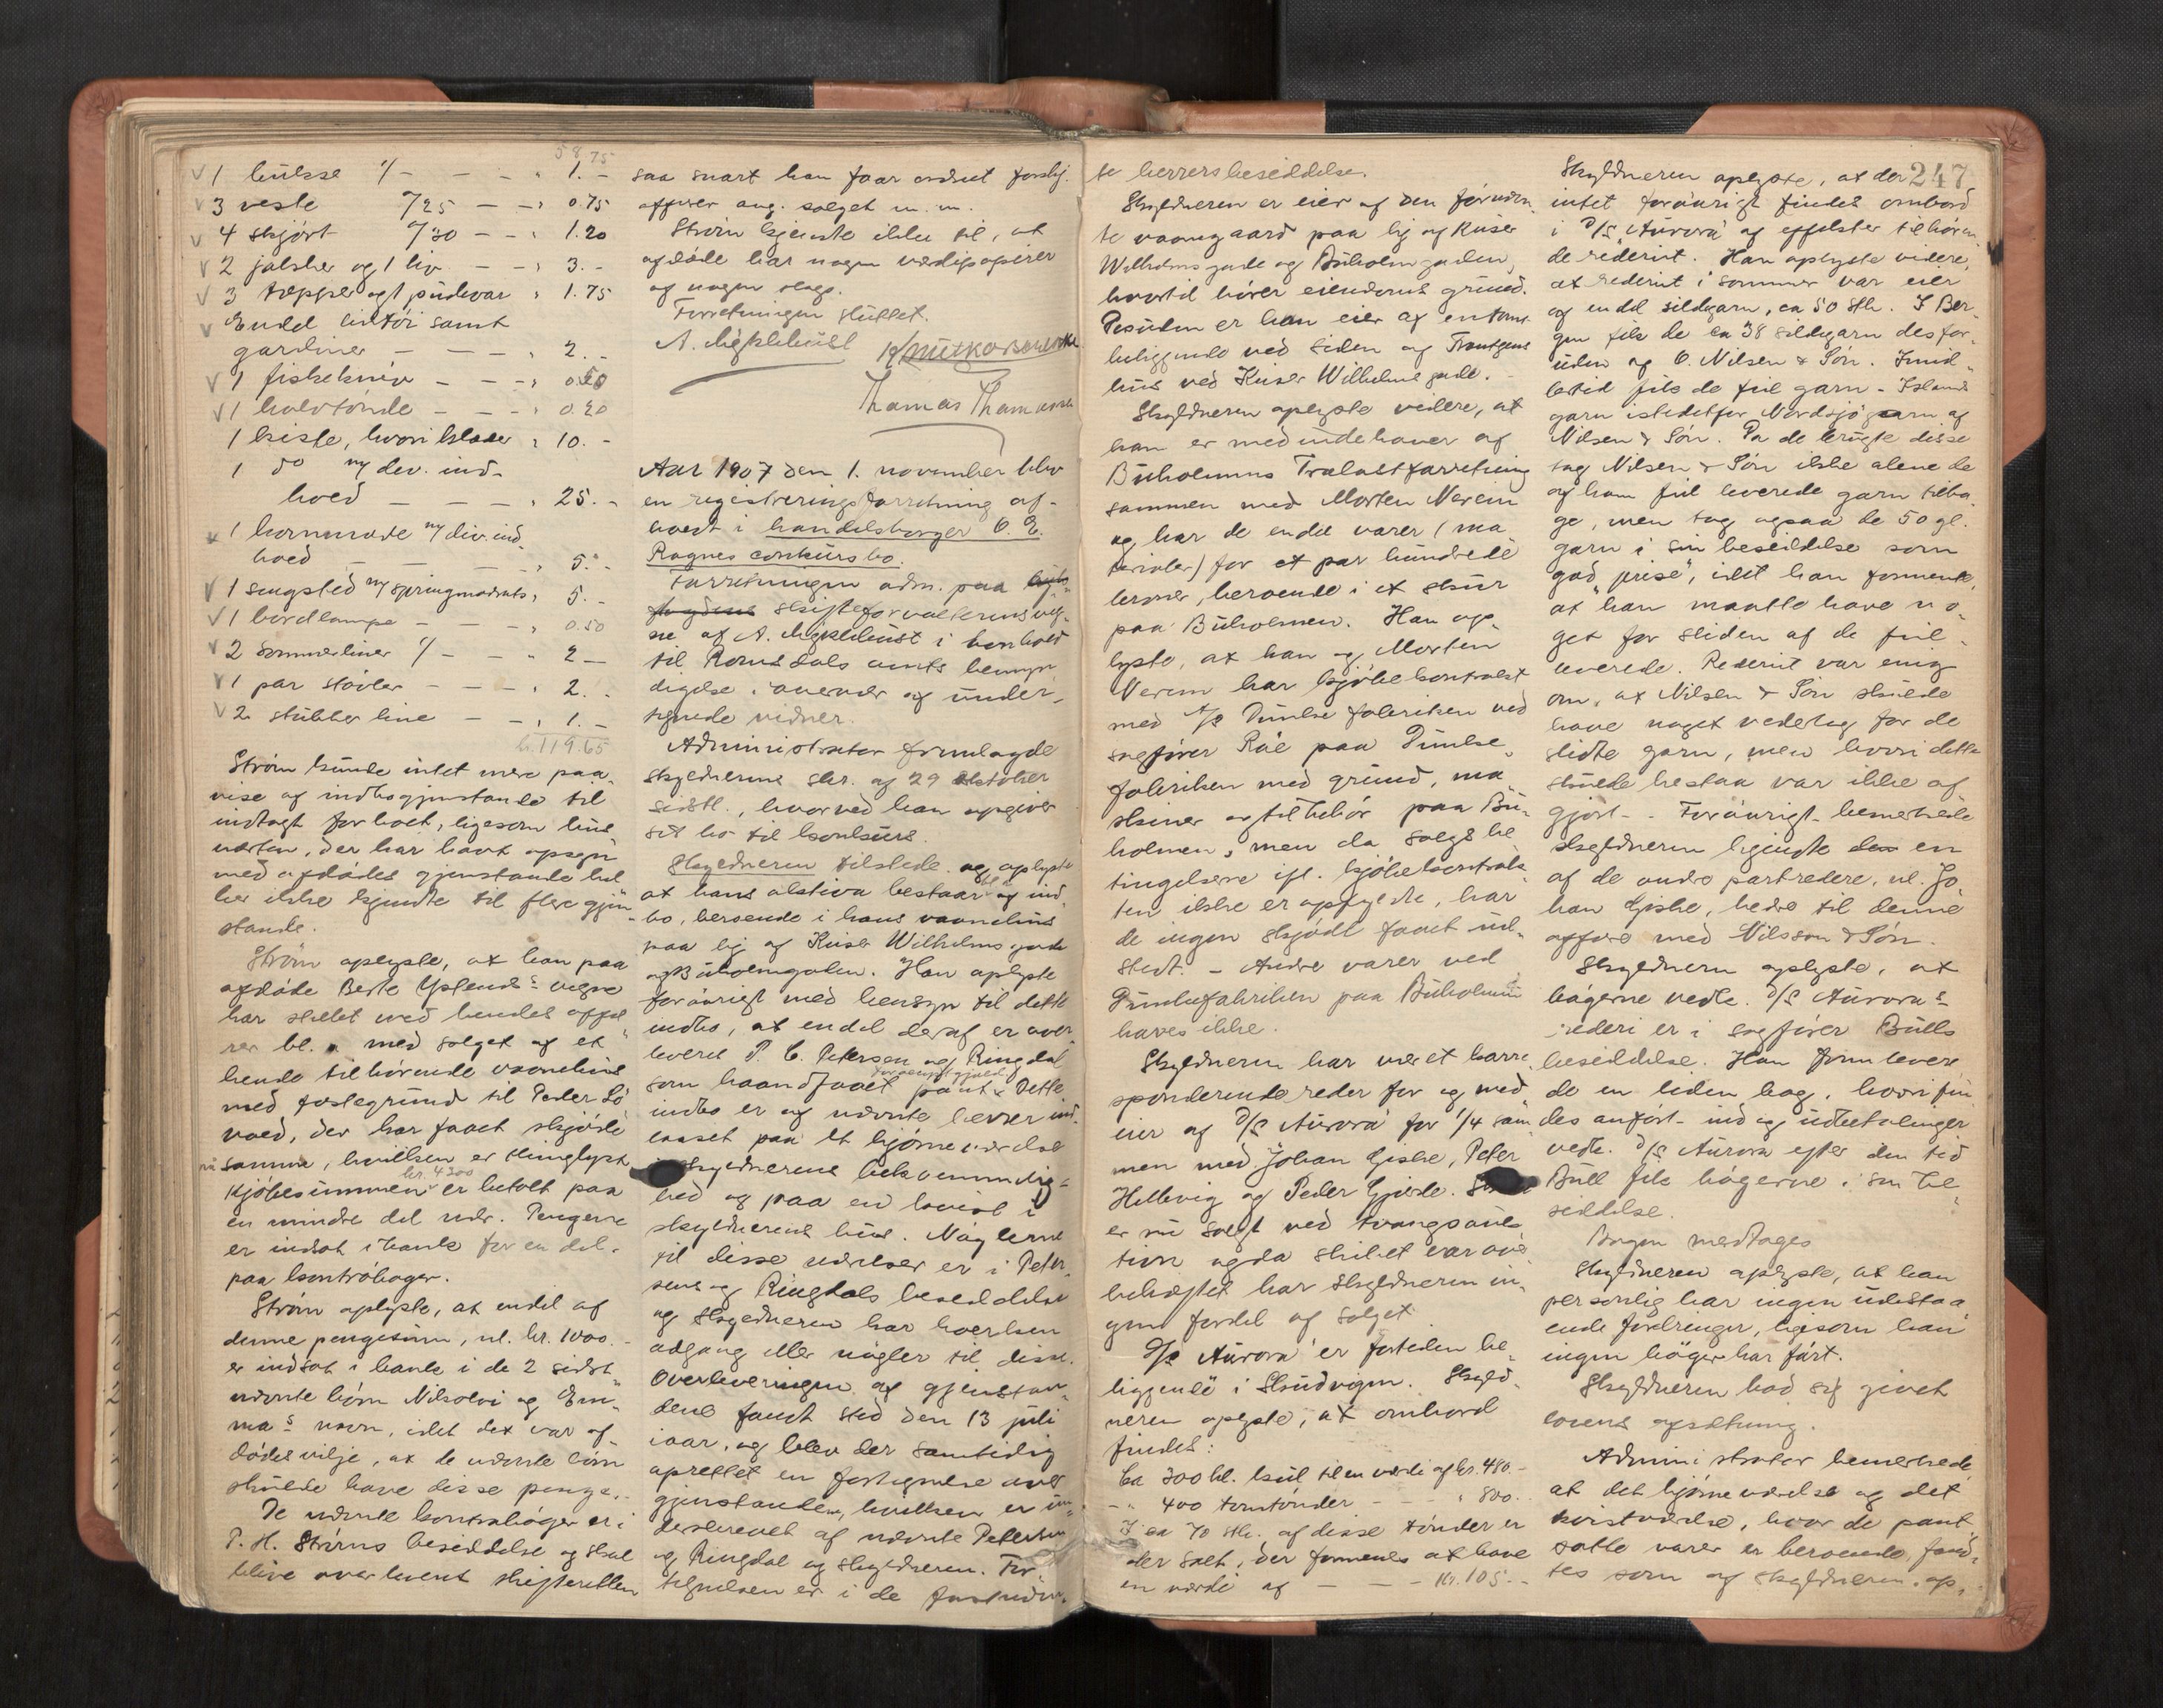 58.75
1 bluse " - - - " 1.-
3 veste 7/25 - - " 0.75
4 skjørt 7/30 - - " 1.20
2 jakker og 1 liv - - " 3.-
3 tæpper og 1 pudevar " 1.75
Endel
gardiner - - - " 2.-
1 fiskekniv - - - " 0.50
1 halvtønde - - - " 0.20
1 kiste, hvori klæder " 10.-
1 do m/ div. ind-
hold - - - " 25.-
1 kommode m/ div. ind
hold - - - " 5.-
1 sengsted m/ springmadrats " 5.-
1 bordlampe - - - " 0.50
2 " - - " 2-
1 par støvler - - - " 2.-
2 stubber line - - " 1.-
kr. 119.65
Strøm kunde intet mere paa-
vise af indbogjenstande til
indtægt for boet, ligesom hus
værten, der har havt opsyn
med afdødes gjenstande hel
ler ikke kjendte til flere gjen
stande.
Strøm oplyste, at han paa
afdøde Berte vegne
har stellet med hendes affæ
rer bl. a. med salget af et
hende tilhørende vaaningshus
med fæstegrund til Peder Lø
vold, der har faaet skjøde
samme, hvilken er thinglyst
kr. 4200
Kjøbesummen er betalt paa
en mindre del nær. Pengene
er indsat i bank for en del.
paa kontrabøger.
Strøm oplyste, at endel af
denne pengesum, nl. kr. 1000.-
er indsat i bank i de 2 sidst
nævnte børn Nikolai og Em-
mas navn, idet det var af-
dødes vilje, at de nævnte børn
skulde have disse penge.
De nævnte kontrabøger er i
P. H. Strøms besiddelse og skal
blive overleveret skifteretten
saa snart han faar ordnet forskj.
affærer ang. salget m. m.
Strøm kjendte ikke til, at
afdøde har nogen værdipapirer
af nogen slags.
Forretningen sluttet.
A. Myklebust
Thomas Thomassen
Aar 1907 den 1. november blev
en registreringsforretning af-
holdt i handelsborger O. E.
Ragnes conkursbo.
Forretningen adm. paa
skifteforvalterens veg-
ne af A. Myklebust i henhold
til Romsdals amts bemyn-
digelse i overvær af under-
tegnede vidner.
Administrator fremlagde
skyldnerens skr. af 29 oktober
sidstl., hvorved han opgiver
sit bo til konkurs.
Skyldneren tilstede og oplyste
at hans aktiva bestaar af ind
bo, beroende i hans vaanehus
paa hj. af Keiser Wilhelms gade
og Buholmgaden. Han oplyste
forøvrigt med hensyn til dette
indbo, at endel deraf er over
leveret P. C. Petersen og Ringdal
som haandfaaet pant. Dette
indbo er af nævnte herrer ind-
laaset paa et hjørneværelse
i skyldnerens bekvemmelig-
hed og paa en kvist i
skyldnerens hus. Nøglerne
til disse værelser er i Peter-
sens og Ringdals besiddelse
og skyldneren har hverken
adgang eller nøgler til disse.
Overleveringen af gjenstan-
dene fandt sted den 13 juli
iaar, og blev der samtidig
oprettet en fortegnelse over
gjenstanden, hvilken er un-
derskrevet af nævnte Petersen
og Ringdal og skyldneren. For
tegnelsen er i de
te herrers besiddelse.
Skyldneren er eier af den førnævn
te vaangaard paa hj. af Keiser
Wilhelms gade og Buholmgaden,
hvortil hører eiendoms grund.
Desuden er han eier af en tomt
beliggende ved siden af
hus ved Keiser Wilhelms gade.
Skyldneren oplyste videre, at
han er medindehaver af
Buholmens Trælastforretning
sammen med Morten Nerem
og har de endel varer (ma
terialer) for et par hundrede
kroner, beroende i et skur
paa Buholmen. Han op-
lyste, at han og Morten
Nerem har kjøbekontrakt
med A/S ved
sagfører Röe paa
fabriken med grund, ma
skiner og tilbehør paa Bu-
holmen, men da salgsbe
tingelserne ifl. kjøbekontrak-
ten ikke er opfyldte, har
de ingen skjøde faaet ud-
stedt. - Andre varer ved
paa Buholmen
haves ikke.
Skyldneren har været korre
sponderende reder for og med-
eier af D/S "Aurora" for 1/4 sam
men med Johan Giske, Peter
Hellevig og Peder Gjerde. Skibet
er nu solgt ved tvangsauk
tion og da skibet var over
behæftet har skyldneren in-
gen fordel af salget.
D/S "Aurora" er fortiden be-
liggende i Skudvigen. Skyld-
neren oplyste, at ombord
findes:
Ca 300 hl. kul til en værdi af kr. 480.-
- " 400 tomtønder - - " 800.-
I ca 70 stk. af disse tønder er
der salt, der formenes at have
en værdi af - - - kr. 105.-
247
Skyldneren oplyste, at der
intet forøvrigt findes ombord
i D/S "Aurora" af effekter tilhøren
de rederiet. Han oplyste videre,
at rederiet i sommer var eier
af endel sildegarn, ca 50 stk. I Ber-
gen fik de ca 38 sildegarn desfor-
uden af O. Nilsen & Søn. Imid-
lertid fik de feil garn - Islands
garn istedetfor Nordsjøgarn af
Nilsen & Søn. Da de brugte disse
tog Nilsen & Søn ikke alene de
af ham feil leverede garn tilba
ge, men tog ogsaa de 50 gl.
garn i sin besiddelse som
god "prise", idet han formente
at han maatte have no-
get for sliden af de feil-
leverede. Rederiet var enig
om, at Nilsen & Søn skulde
have noget vederlag for de
slidte garn, men hvori dette
skulde bestaa var ikke af-
gjort. - Forøvrigt bemerkede
skyldneren kjendte en
af de andre partredere, nl. Jo-
han Giske, bedre til denne
affære med Nilsson & Søn.
Skyldneren oplyste, at
bøgerne vedk. D/S Auroras
rederi er i sagfører Bulls
besiddelse. Han fremlever
de en liden bog, hvori fin
des anført ind og udbetalinger
vedk. D/S Aurora efter den tid
Bull fik bøgerne i sin be-
siddelse.
Bogen medtages
Skyldneren oplyste, at han
personlig har ingen udestaa
ende fordringer, ligesom han
ingen bøger har ført.
Skyldneren bad sig givet
lovens opsætning.
Administrator bemerkede
at det hjørneværelse og det
kvistværelse, hvor de pant
satte varer er beroende, fand-
tes som af skyldneren op-